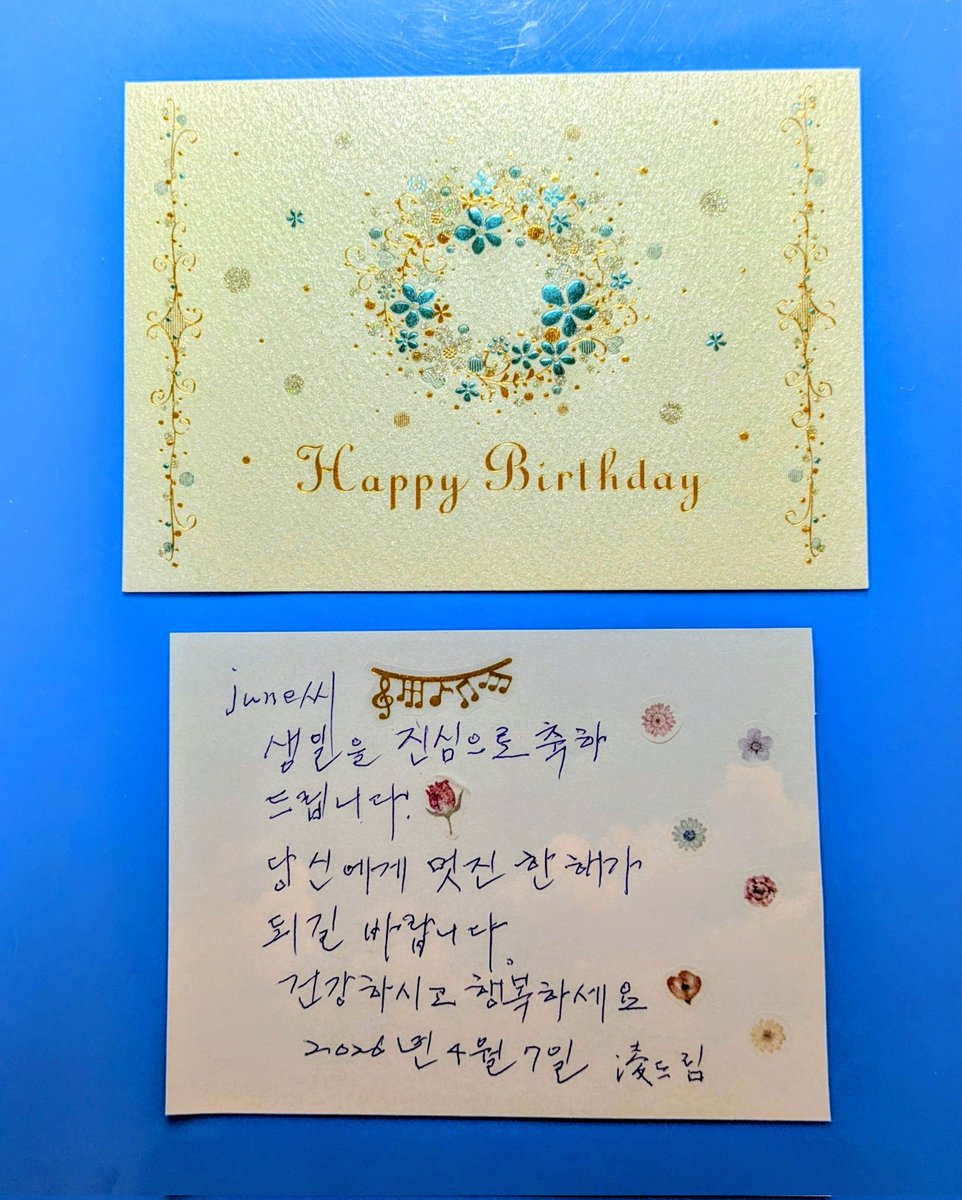 Happy Birthday
june씨
생일을 진심으로 축하
드립니다!
당신에게 멋진 한 해가
되길 바랍니다.
건강하시고 행복하세요
2026년 4월 7일 凌드림